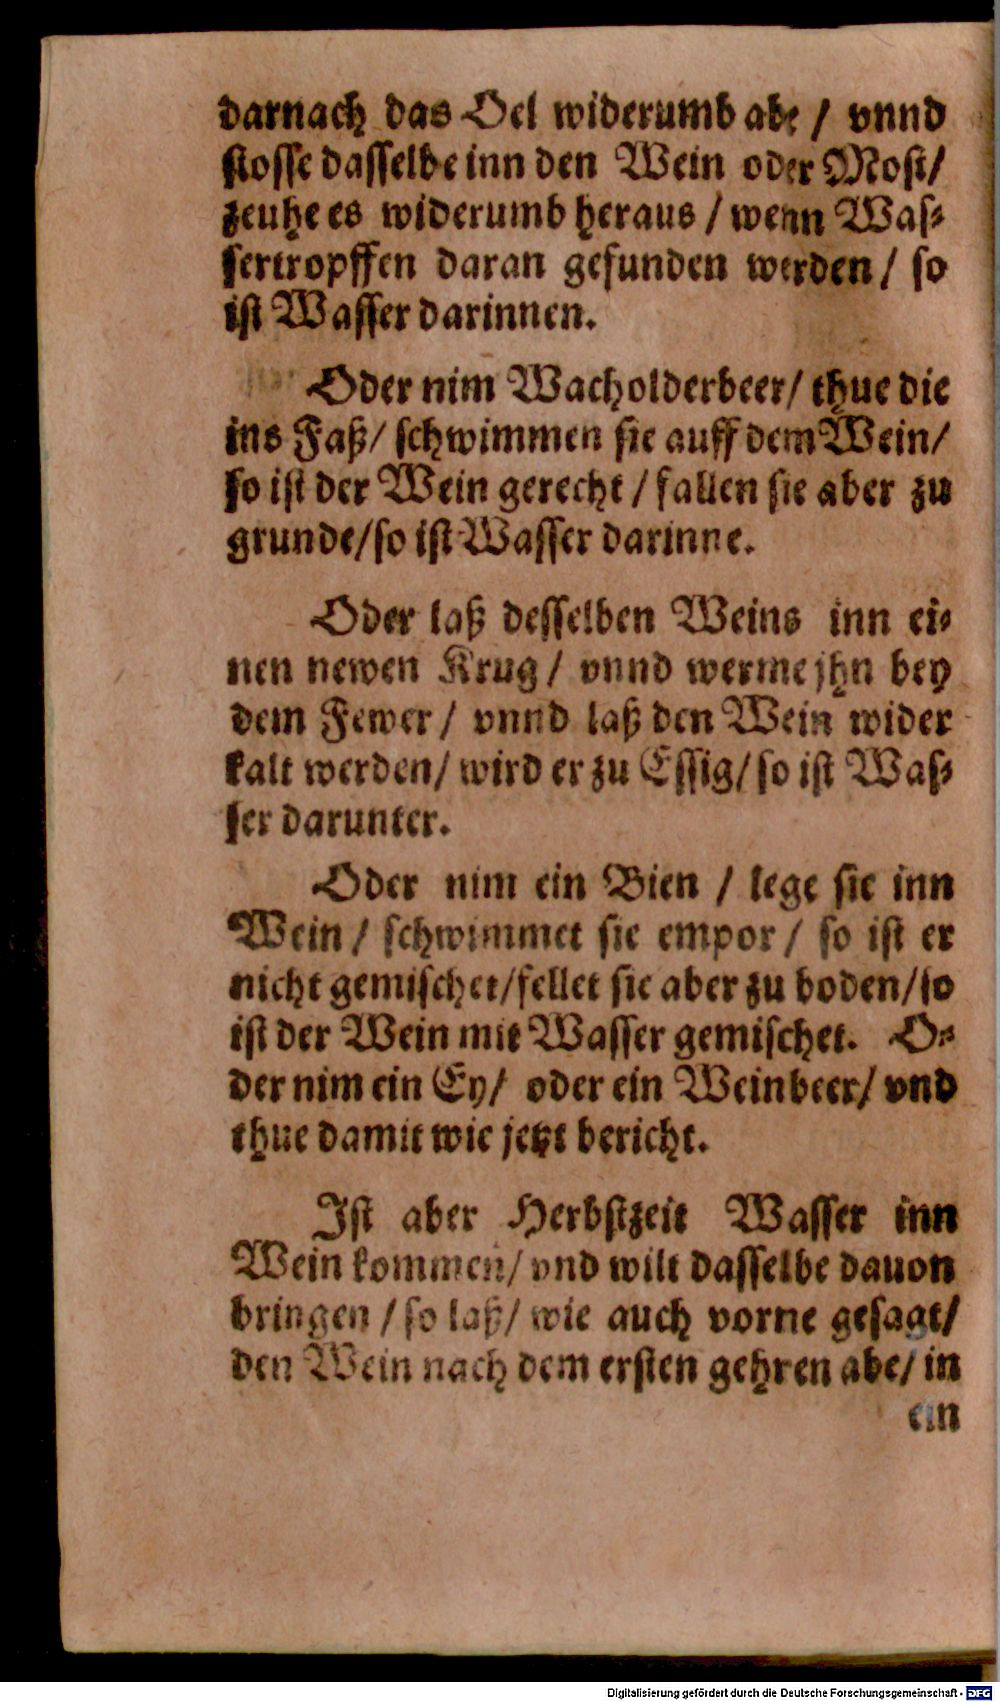 darnach das Oel widerumb abe / vnnd
stosse dasselbe inn den Wein oder Most/
zeuhe es widerumb heraus / wenn Was-
sertropffen daran gefunden werden / so
ist Wasser darinnen.
Oder nim Wacholderbeer/ thue die
ins Faß/ schwimmen sie auff dem Wein/
so ist der Wein gerecht / fallen sie aber zu
grunde/so ist Wasser darinne.
Oder laß desselben Weins inn ei-
nen newen Krug / vnnd werme jhn bey
dem Fewer / vnnd laß den Wein wider
kalt werden/ wird er zu Essig/ so ist Was-
ser darunter.
Oder nim ein Bien / lege sie inn
Wein / schwimmet sie empor / so ist er
nicht gemischet/fellet sie aber zu boden/so
ist der Wein mit Wasser gemischet. O-
der nim ein Ey/ oder ein Weinbeer/ vnd
thue damit wie jetzt bericht.
Ist aber Herbstzeit Wasser inn
Wein kommen/ vnd wilt dasselbe dauon
bringen / so laß/ wie auch vorne gesagt/
den Wein nach dem ersten gehren abe/ in
ein
Digitalisierung gefördert durch die Deutsche Forschungsgemeinschaft - DFG